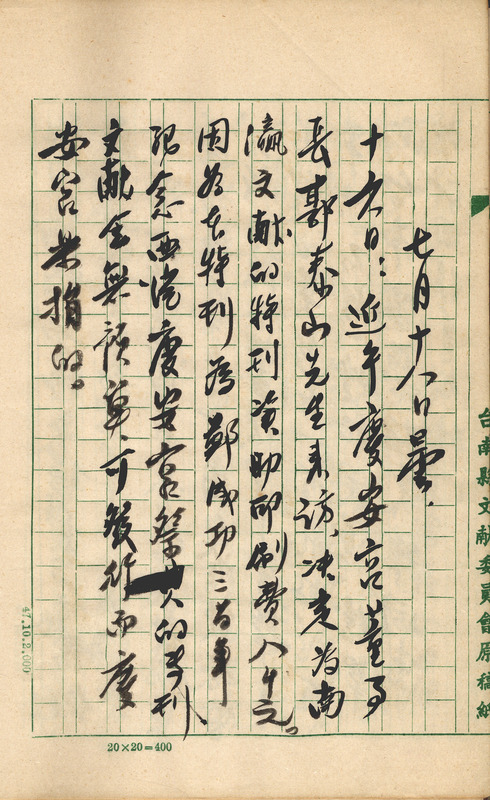 台南縣文献委員會原稿紙
七月十八日曇.
十六日：近午慶安宮董事
長郭泰山先生来訪、決定為南
瀛文献的特刊資助印刷費八千元。
因為本特刊為鄭成功三百年
紀念西港慶安宮祭 的專刊
文献会無預算、可發行而慶
安宮樂捐的。
47.10.2,000
20×20=400